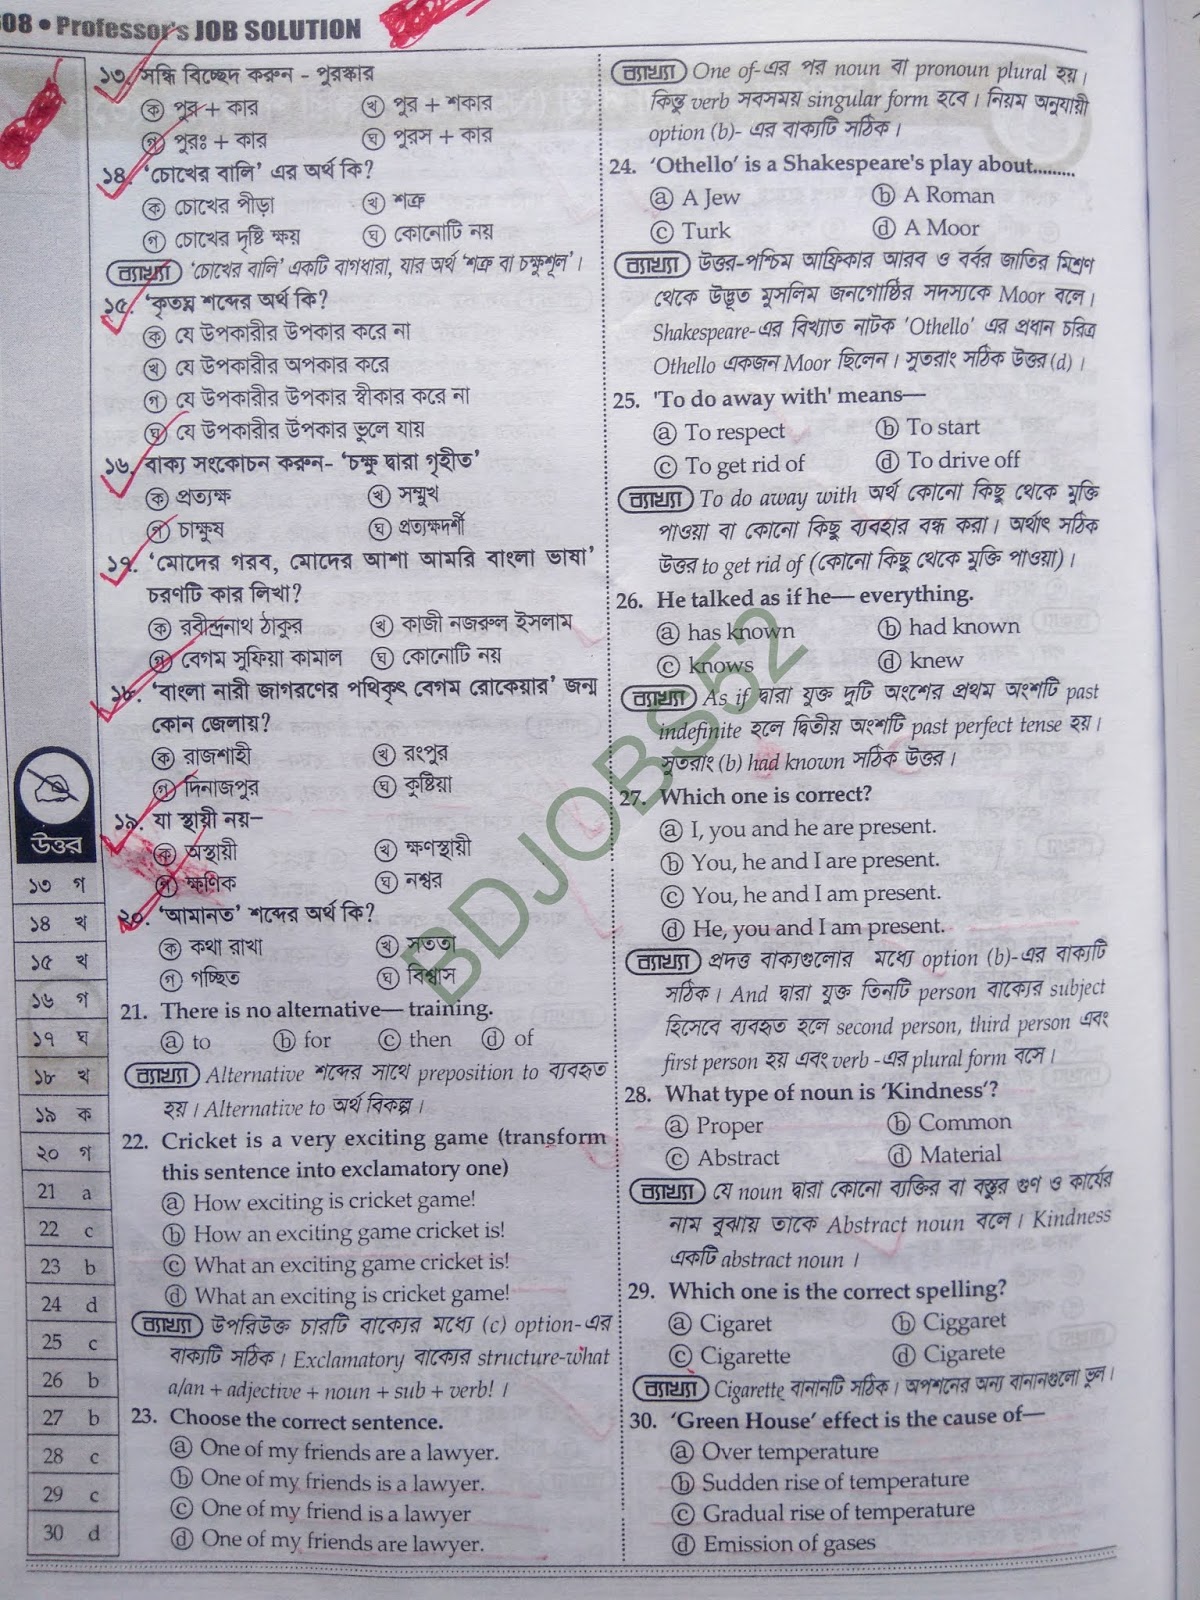 608 • Professor's JOB SOLUTION
১৩. সন্ধি বিচ্ছেদ করুন - পুরস্কার
ক পুর + কার খ পুর + শকার
গ পুরঃ + কার ঘ পুরস + কার
১৪. ‘চোখের বালি’ এর অর্থ কি?
ক চোখের পীড়া খ শত্রু
গ চোখের দৃষ্টি ক্ষয় ঘ কোনোটি নয়
ব্যাখ্যা ‘চোখের বালি’ একটি বাগধারা, যার অর্থ ‘শত্রু বা চক্ষুশূল’।
১৫. ‘কৃতঘ্ন শব্দের অর্থ কি?
ক যে উপকারীর উপকার করে না
খ যে উপকারীর অপকার করে
গ যে উপকারীর উপকার স্বীকার করে না
ঘ যে উপকারীর উপকার ভুলে যায়
১৬. বাক্য সংকোচন করুন- ‘চক্ষু দ্বারা গৃহীত’
ক প্রত্যক্ষ খ সম্মুখ
গ চাক্ষুষ ঘ প্রত্যক্ষদর্শী
১৭. ‘মোদের গরব, মোদের আশা আমরি বাংলা ভাষা’
চরণটি কার লিখা?
ক রবীন্দ্রনাথ ঠাকুর খ কাজী নজরুল ইসলাম
গ বেগম সুফিয়া কামাল ঘ কোনোটি নয়
১৮. ‘বাংলা নারী জাগরণের পথিকৃৎ বেগম রোকেয়ার’ জন্ম
কোন জেলায়?
ক রাজশাহী খ রংপুর
গ দিনাজপুর ঘ কুষ্টিয়া
১৯. যা স্থায়ী নয়–
ক অস্থায়ী খ ক্ষণস্থায়ী
গ ক্ষণিক ঘ নশ্বর
২০. ‘আমানত’ শব্দের অর্থ কি?
ক কথা রাখা খ সততা
গ গচ্ছিত ঘ বিশ্বাস
21. There is no alternative— training.
a to b for c then d of
ব্যাখ্যা Alternative শব্দের সাথে preposition to ব্যবহৃত
হয়। Alternative to অর্থ বিকল্প।
22. Cricket is a very exciting game (transform
this sentence into exclamatory one)
a How exciting is cricket game!
b How an exciting game cricket is!
c What an exciting game cricket is!
d What an exciting is cricket game!
ব্যাখ্যা উপরিউক্ত চারটি বাক্যের মধ্যে (c) option-এর
বাক্যটি সঠিক। Exclamatory বাক্যের structure-what
a/an + adjective + noun + sub + verb! ।
23. Choose the correct sentence.
a One of my friends are a lawyer.
b One of my friends is a lawyer.
c One of my friend is a lawyer
d One of my friends are lawyer.
উত্তর
১৩ গ
১৪ খ
১৫ খ
১৬ গ
১৭ ঘ
১৮ খ
১৯ ক
২০ গ
21 a
22 c
23 b
24 d
25 c
26 b
27 b
28 c
29 c
30 d
ব্যাখ্যা One of-এর পর noun বা pronoun plural হয়।
কিন্তু verb সবসময় singular form হবে। নিয়ম অনুযায়ী
option (b)- এর বাক্যটি সঠিক।
24. ‘Othello’ is a Shakespeare's play about.........
a A Jew b A Roman
c Turk d A Moor
ব্যাখ্যা উত্তর-পশ্চিম আফ্রিকার আরব ও বর্বর জাতির মিশ্রণ
থেকে উদ্ভূত মুসলিম জনগোষ্ঠির সদস্যকে Moor বলে।
Shakespeare-এর বিখ্যাত নাটক ‘Othello’ এর প্রধান চরিত্র
Othello একজন Moor ছিলেন। সুতরাং সঠিক উত্তর (d)।
25. 'To do away with' means—
a To respect b To start
c To get rid of d To drive off
ব্যাখ্যা To do away with অর্থ কোনো কিছু থেকে মুক্তি
পাওয়া বা কোনো কিছু ব্যবহার বন্ধ করা। অর্থাৎ সঠিক
উত্তর to get rid of (কোনো কিছু থেকে মুক্তি পাওয়া)।
26. He talked as if he— everything.
a has known b had known
c knows d knew
ব্যাখ্যা As if দ্বারা যুক্ত দুটি অংশের প্রথম অংশটি past
indefinite হলে দ্বিতীয় অংশটি past perfect tense হয়।
সুতরাং (b) had known সঠিক উত্তর।
27. Which one is correct?
a I, you and he are present.
b You, he and I are present.
c You, he and I am present.
d He, you and I am present.
ব্যাখ্যা প্রদত্ত বাক্যগুলোর মধ্যে option (b)-এর বাক্যটি
সঠিক। And দ্বারা যুক্ত তিনটি person বাক্যের subject
হিসেবে ব্যবহৃত হলে second person, third person এবং
first person হয় এবং verb -এর plural form বসে।
28. What type of noun is ‘Kindness’?
a Proper b Common
c Abstract d Material
ব্যাখ্যা যে noun দ্বারা কোনো ব্যক্তির বা বস্তুর গুণ ও কার্যের
নাম বুঝায় তাকে Abstract noun বলে। Kindness
একটি abstract noun ।
29. Which one is the correct spelling?
a Cigaret b Ciggaret
c Cigarette d Cigarete
ব্যাখ্যা Cigarette বানানটি সঠিক। অপশনের অন্য বানানগুলো ভুল।
30. ‘Green House’ effect is the cause of—
a Over temperature
b Sudden rise of temperature
c Gradual rise of temperature
d Emission of gases
BDJOBS52